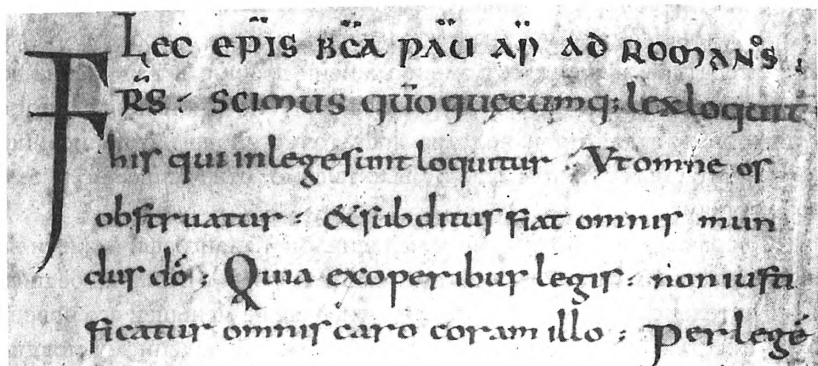 Lec ep̄is bēa pāu ap̄ ad romanos :
FR̄S : Scimus qūo quęcumq; lex loquit
his qui in lege sunt loquitur . Vt omne os
obstruatur : & subditus fiat omnis mun
dus dō : Quia ex operibus legis : non iusti
ficatur omnis caro coram illo : Per legē